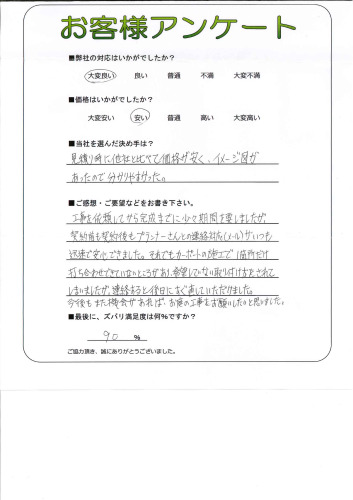 お客様アンケート
■弊社の対応はいかがでしたか?
大変良い 良い 普通 不満 大変不満
■価格はいかがでしたか?
大変安い 安い 普通 高い 大変高い
■当社を選んだ決め手は?
見積り時に他社と比べて価格が安く、イメージ図が
あったので分かりやすかった。
■ご感想・ご要望などをお書き下さい。
工事を依頼してから完成までに少々期間を要しましたが、
契約前も契約後もプランナーさんとの連絡対応(メール)がいつも
迅速で安心できました。それでもカーポートの施工で1箇所だけ
打ち合わせできていないところがあり、希望していない取り付け方をされて
しまいましたが、連絡すると後日にすぐ直していただけました。
今後もまた機会があれば、お庭の工事をお願いしたいと思いました。
■最後に、ズバリ満足度は何%ですか?
90 %
ご協力頂き、誠にありがとうございました。